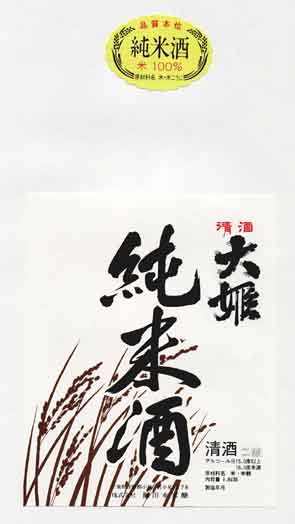 品質本位
純米酒
米 100%
原材料名 米・米こうじ
清酒
大姫
純米酒
清酒 二級
アルコール分15.0度以上
16.0度未満
原材料名 米・米麹
製造年月